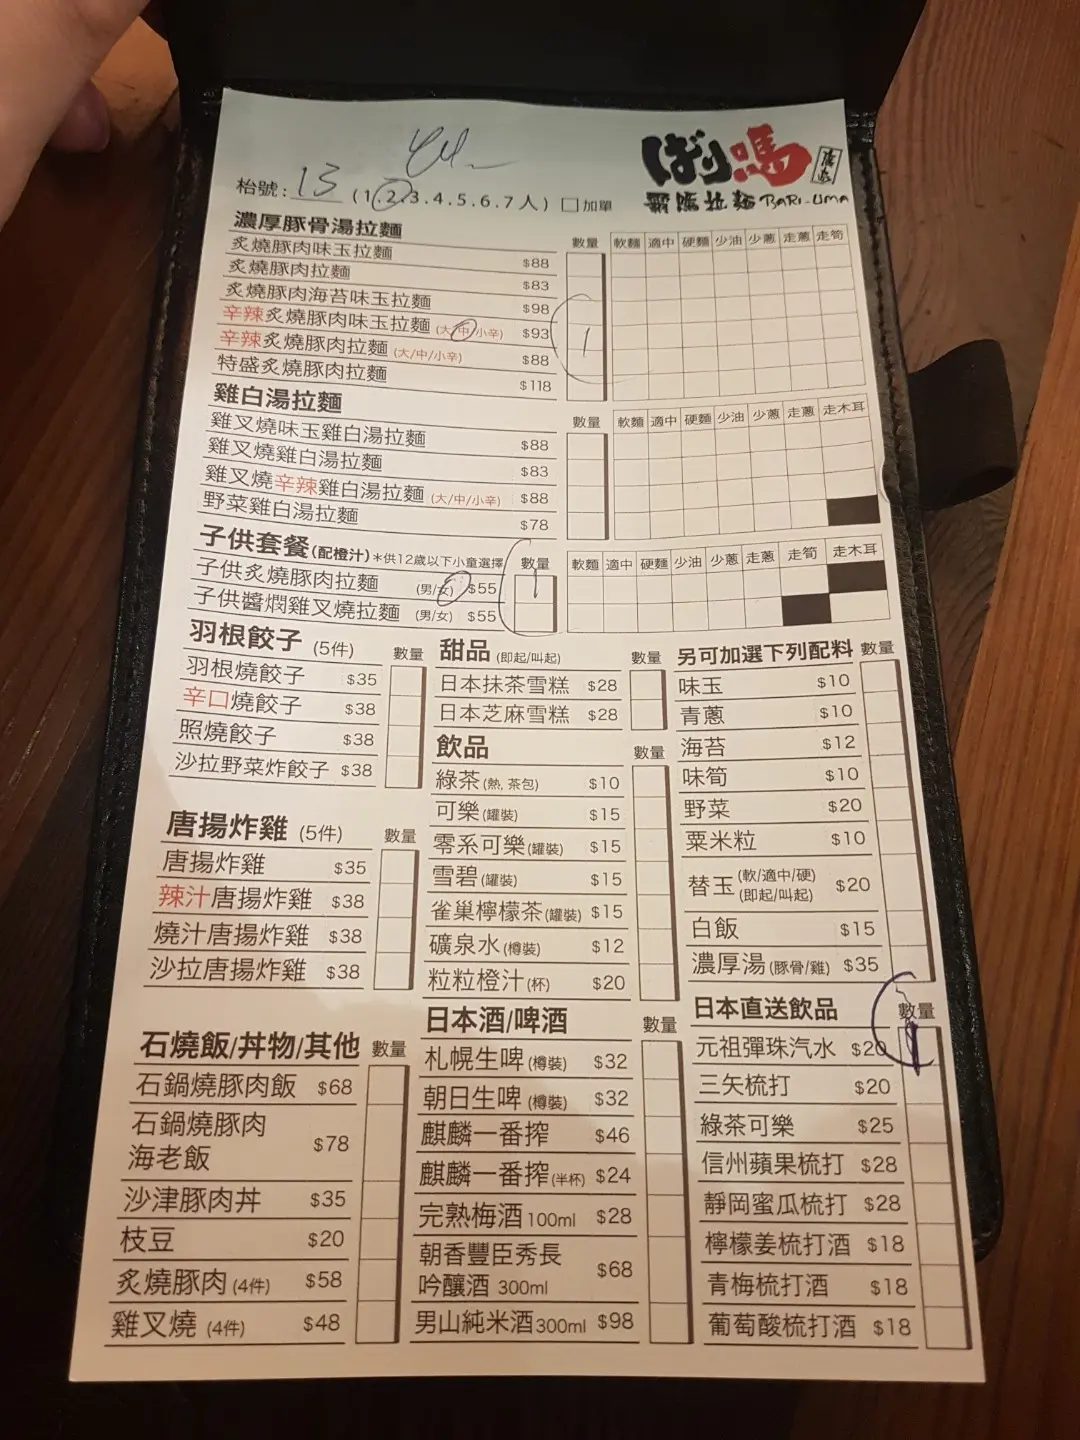 ばり馬
霸嗎拉麵 BARI-UMA
枱號: 13 (1.2.3.4.5.6.7人) □加單
濃厚豚骨湯拉麵 數量 軟麵 適中 硬麵 少油 少蔥 走蔥 走筍
炙燒豚肉味玉拉麵 $88
炙燒豚肉拉麵 $83
炙燒豚肉海苔味玉拉麵 $98
辛辣炙燒豚肉味玉拉麵 (大/中/小辛) $93 1
辛辣炙燒豚肉拉麵 (大/中/小辛) $88
特盛炙燒豚肉拉麵 $118
雞白湯拉麵 數量 軟麵 適中 硬麵 少油 少蔥 走蔥 走木耳
雞叉燒味玉雞白湯拉麵 $88
雞叉燒雞白湯拉麵 $83
雞叉燒辛辣雞白湯拉麵 (大/中/小辛) $88
野菜雞白湯拉麵 $78
子供套餐(配橙汁) *供12歲以下小童選擇 數量 軟麵 適中 硬麵 少油 少蔥 走蔥 走筍 走木耳
子供炙燒豚肉拉麵 (男/女) $55 1
子供醬燜雞叉燒拉麵 (男/女) $55
羽根餃子 (5件) 數量
羽根燒餃子 $35
辛口燒餃子 $38
照燒餃子 $38
沙拉野菜炸餃子 $38
唐揚炸雞 (5件) 數量
唐揚炸雞 $35
辣汁唐揚炸雞 $38
燒汁唐揚炸雞 $38
沙拉唐揚炸雞 $38
石燒飯/丼物/其他 數量
石鍋燒豚肉飯 $68
石鍋燒豚肉
海老飯 $78
沙津豚肉丼 $35
枝豆 $20
炙燒豚肉 (4件) $58
雞叉燒 (4件) $48
甜品 (即起/叫起) 數量
日本抹茶雪糕 $28
日本芝麻雪糕 $28
飲品 數量
綠茶 (熱, 茶包) $10
可樂 (罐裝) $15
零系可樂 (罐裝) $15
雪碧 (罐裝) $15
雀巢檸檬茶 (罐裝) $15
礦泉水 (樽裝) $12
粒粒橙汁 (杯) $20
日本酒/啤酒 數量
札幌生啤 (樽裝) $32
朝日生啤 (樽裝) $32
麒麟一番搾 $46
麒麟一番搾 (半杯) $24
完熟梅酒 100ml $28
朝香豐臣秀長
吟釀酒 300ml $68
男山純米酒 300ml $98
另可加選下列配料 數量
味玉 $10
青蔥 $10
海苔 $12
味筍 $10
野菜 $20
粟米粒 $10
替玉 (軟/適中/硬) (即起/叫起) $20
白飯 $15
濃厚湯 (豚骨/雞) $35
日本直送飲品 數量
元祖彈珠汽水 $20 1
三矢梳打 $20
綠茶可樂 $25
信州蘋果梳打 $28
靜岡蜜瓜梳打 $28
檸檬姜梳打酒 $18
青梅梳打酒 $18
葡萄酸梳打酒 $18